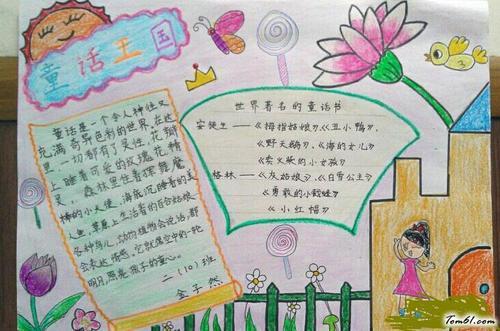 童话王国
童话是一个令人神往又
充满奇异色彩的世界,在这
里一切都有了灵性,花瓣
上睡着可爱的玫瑰花精
灵,森林里住着
棒的小天使,海底沉睡着的美
人鱼,草原上生活着的百合姑娘,
各种鸟儿,动物植物会说话,都
会表达情感。它就像空中的一轮
明月,照亮孩子的童心。
二(10)班
金子然
世界著名的童话书
安徒生——《拇指姑娘》《丑小鸭》,
《野天鹅》,《海的女儿》
《卖火柴的小女孩》
格林——《灰姑娘》,《白雪公主》
《勇敢的小裁缝》
《小红帽》
Tom61.com